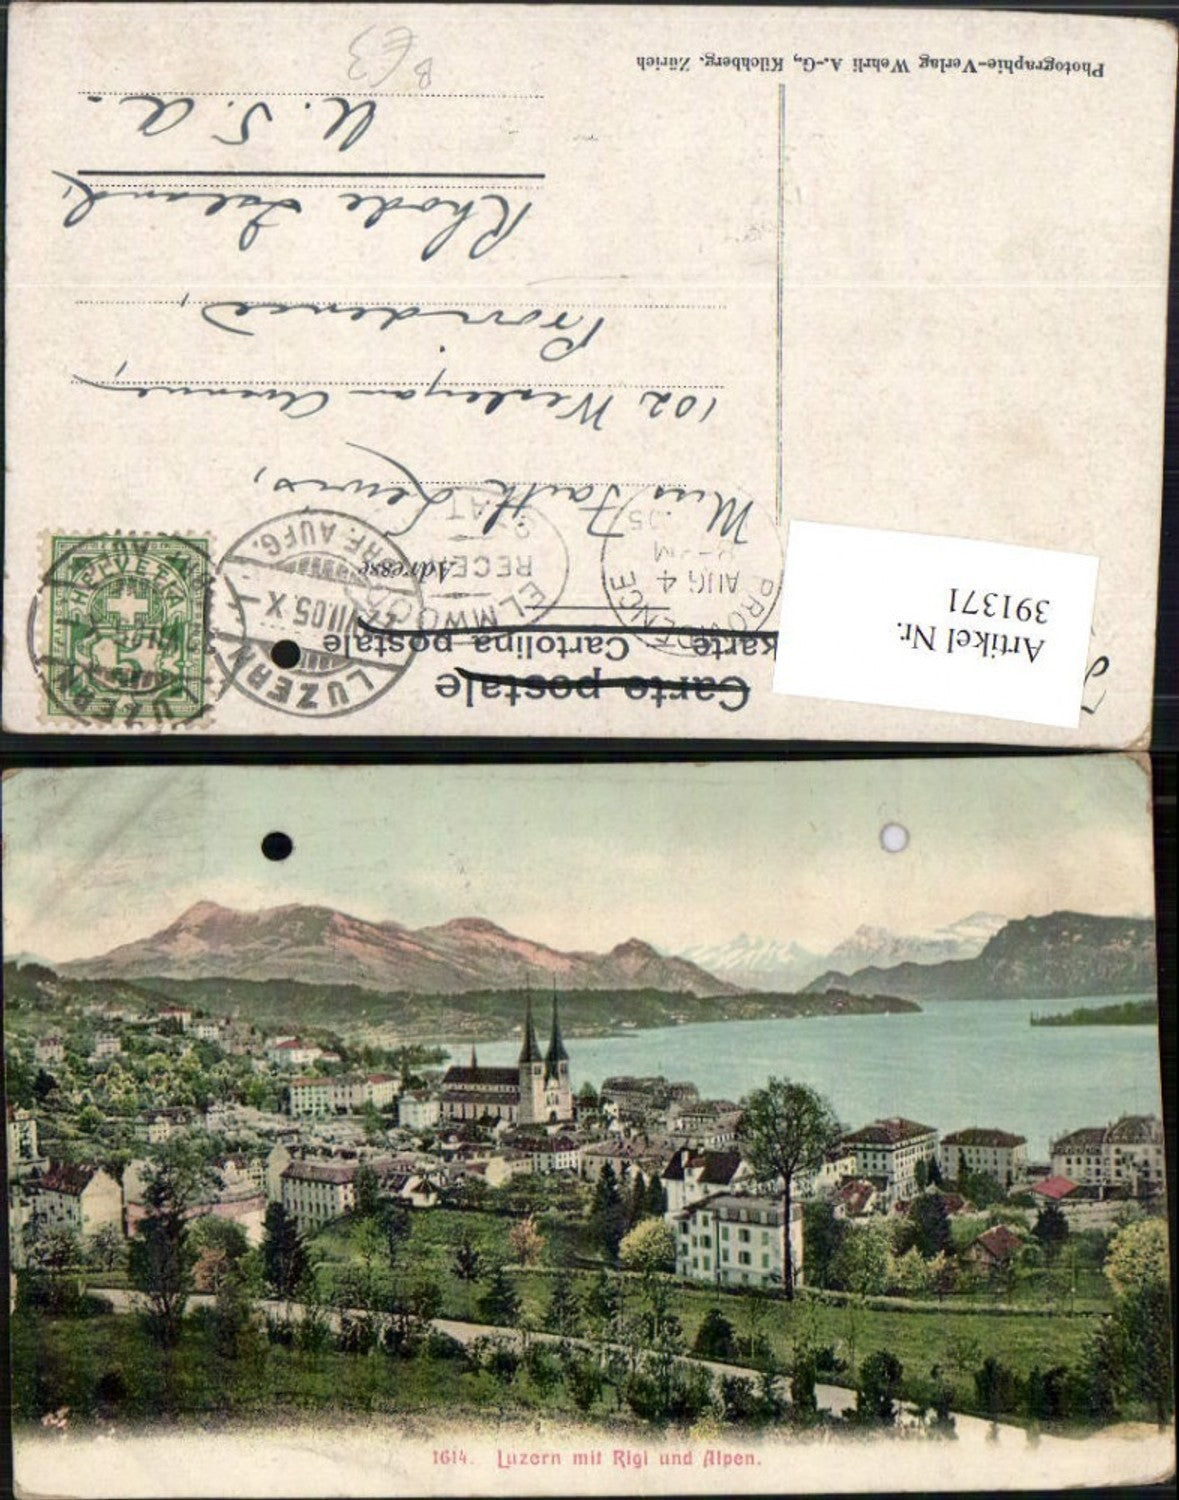 Carte postale
karte Cartolina postale
Adresse
Miss Faith Lewis,
102 Wesleyan Avenue,
Providence,
Rhode Island,
U.S.A.
B63
Photographie-Verlag Wehrli A.-G., Kilchberg. Zürich
Artikel Nr.
391371
HELVETIA
5
LUZERN
LUZERN
VII.05.X
BRF. AUFG.
PROVIDENCE
AUG 4
05
ELMWOOD
RECE
STAT
1614. Luzern mit Rigi und Alpen.